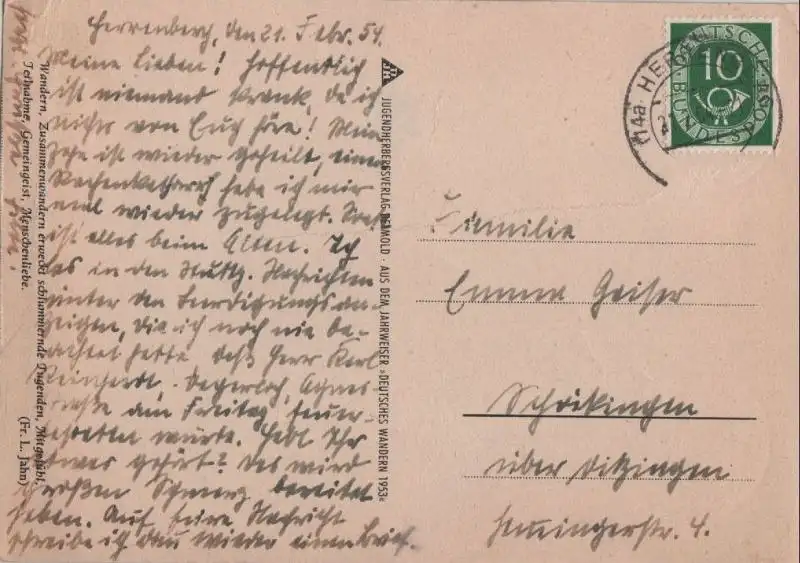 Herrenberg, den 21. Febr. 54.
Meine Lieben! Hoffentlich
ist niemand krank, da ich
nichts von Euch höre! Mein
Zehe ist wieder geheilt, einen
Rachenkatharrh habe ich mir
mal wieder zugelegt. Sonst
ist alles beim Alten. Ich
las in den Stuttg. Nachrichten
hinter den Beerdigungsan-
zeigen, die ich noch nie be-
achtet hatte. Daß Herr Karl
Reinhardt, Degerloch, Agnes-
straße am Freitag feuer-
bestattet wurde. Habt Ihr
etwas gehört? Das wird
großen Schmerz bereitet
haben. Auf Eure Nachricht
schreibe ich dann wieder einen Brief.
Wandern, Zusammenwandern erweckt schlummernde Tugenden, Mitgefühl,
Teilnahme, Gemeingeist, Menschenliebe.
(Fr. L. Jahn)
JUGENDHERBERGSVERLAG DETMOLD · AUS DEM JAHRWEISER »DEUTSCHES WANDERN 1953«
DEUTSCHE
10
BUNDESPOST
(14a) HE
Familie
Emma Geiser
Schöckingen
über Ditzingen